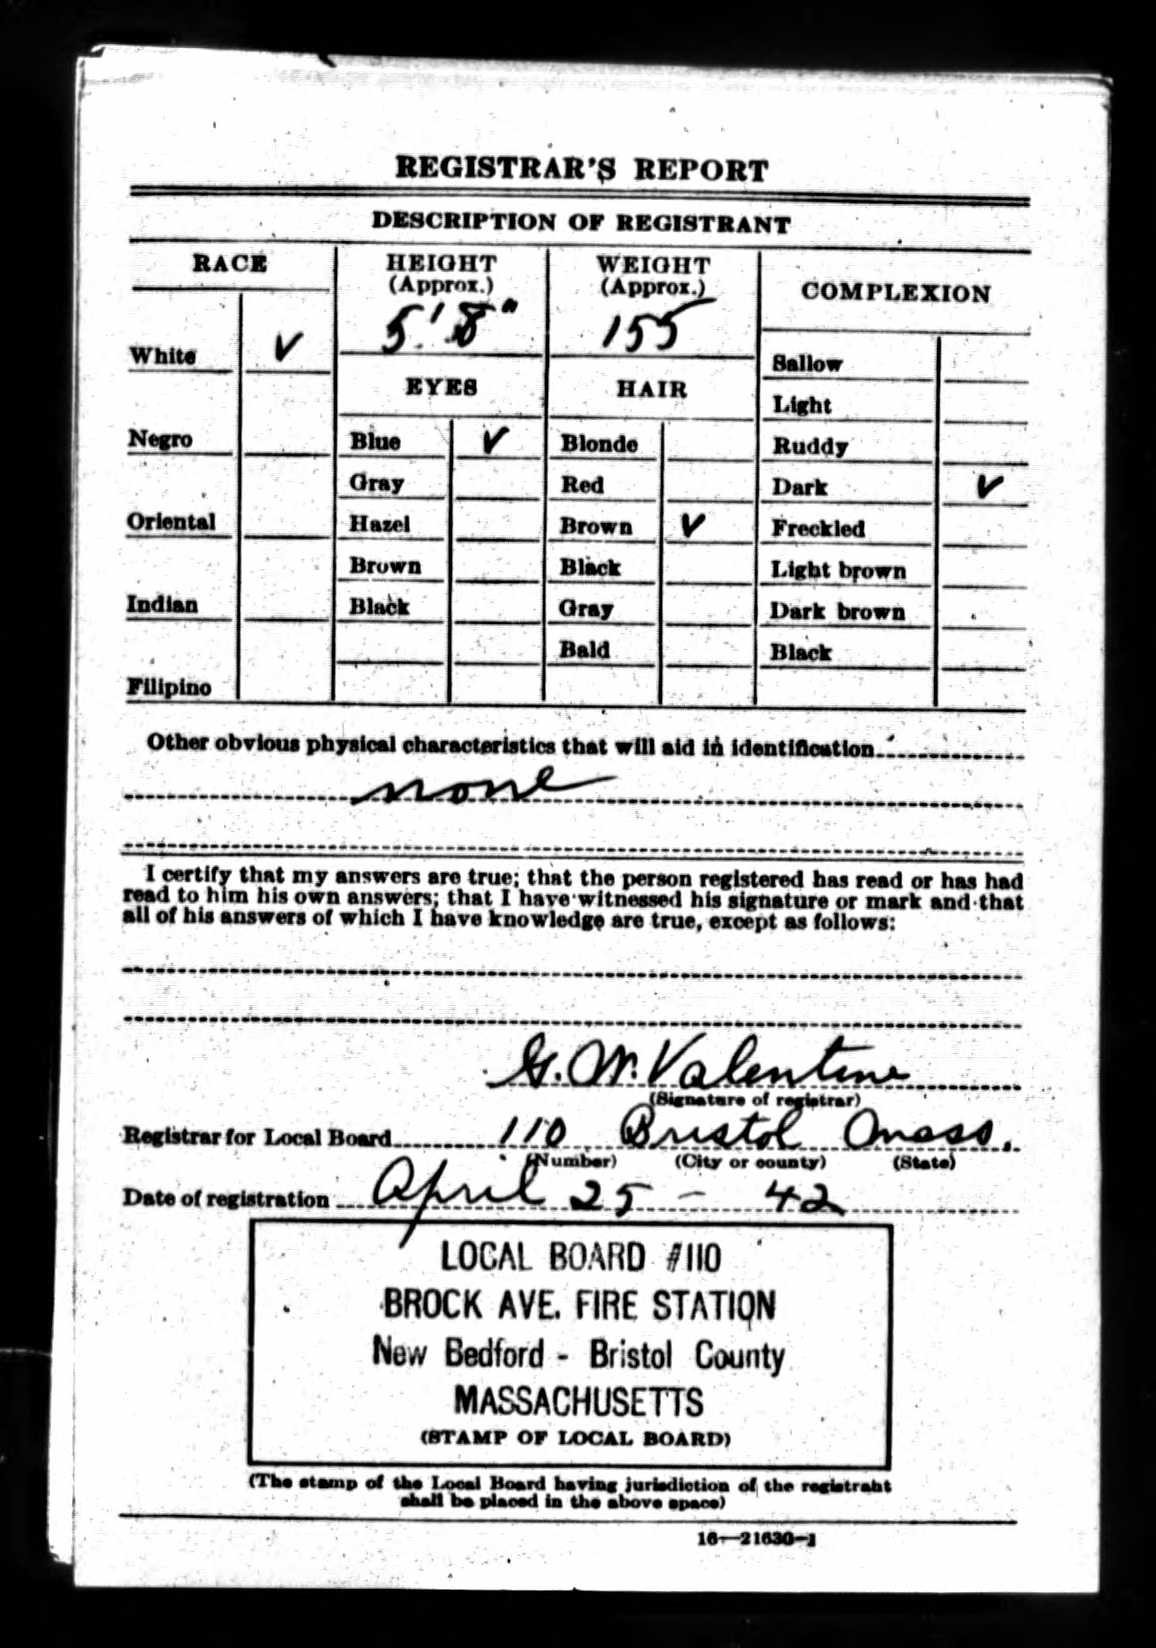 REGISTRAR'S REPORT
DESCRIPTION OF REGISTRANT
RACE
HEIGHT
(Approx.)
5' 8"
WEIGHT
(Approx.)
155
COMPLEXION
White ✓
Negro
Oriental
Indian
Filipino
EYES
Blue ✓
Gray
Hazel
Brown
Black
HAIR
Blonde
Red
Brown ✓
Black
Gray
Bald
Sallow
Light
Ruddy
Dark ✓
Freckled
Light brown
Dark brown
Black
Other obvious physical characteristics that will aid in identification
none
I certify that my answers are true; that the person registered has read or has had
read to him his own answers; that I have witnessed his signature or mark and that
all of his answers of which I have knowledge are true, except as follows:
G. W. Valentine
(Signature of registrar)
Registrar for Local Board 110 Bristol Mass.
(Number) (City or county) (State)
Date of registration April 25 - 42
LOCAL BOARD #110
BROCK AVE. FIRE STATION
New Bedford - Bristol County
MASSACHUSETTS
(STAMP OF LOCAL BOARD)
(The stamp of the Local Board having jurisdiction of the registrant
shall be placed in the above space)
16—21630-1